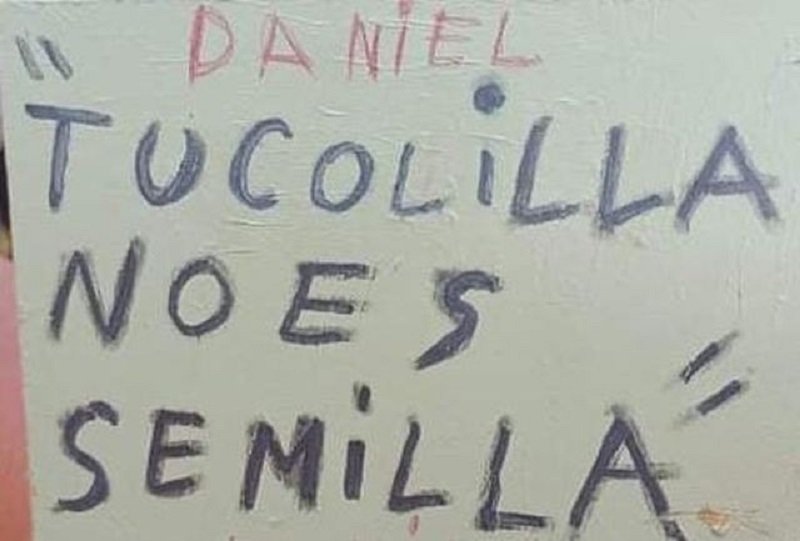 DANiEL
"TUCOLiLLA
NO ES
SEMiLLA"